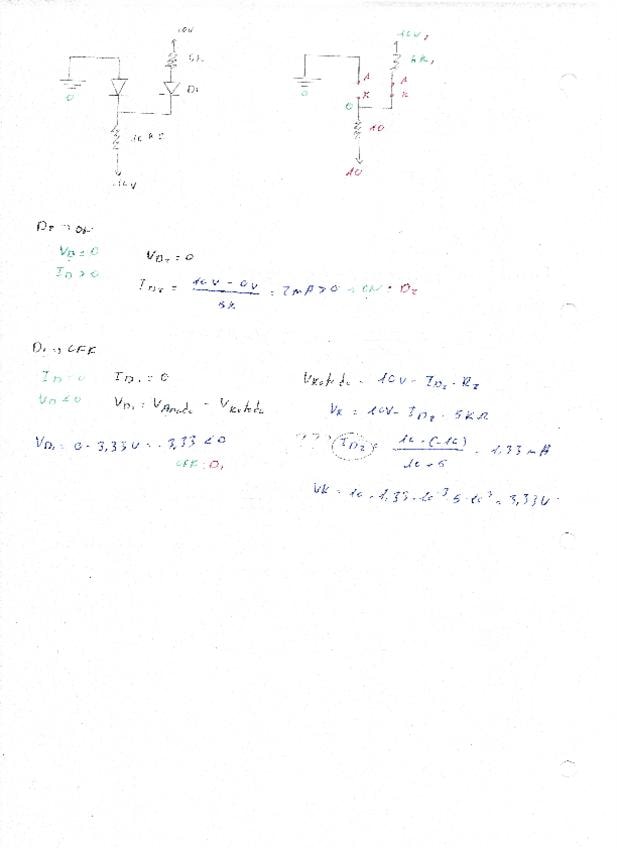 10V
5k
D2
0
10 k Ω
-10V
10V,
5k,
A
A
K
K
0
0
10
10
D2 → ON
VD = 0
VD2 = 0
ID > 0
ID2 = 10V - 0V / 5k = 2mA > 0 → ON : D2
D1 → OFF
ID = 0
ID1 = 0
VD < 0
VD1 = VAnodo - VKatodo
VD1 = 0 - 3,33V = -3,33 < 0
OFF : D1
VKatodo = 10V - ID2 · R2
VK = 10V - ID2 · 5KΩ
??? ID2 = 10 - (-10) / 10 + 5 = 1,33 mA
VK = 10 - 1,33 · 10⁻³ · 5 · 10³ = 3,33V